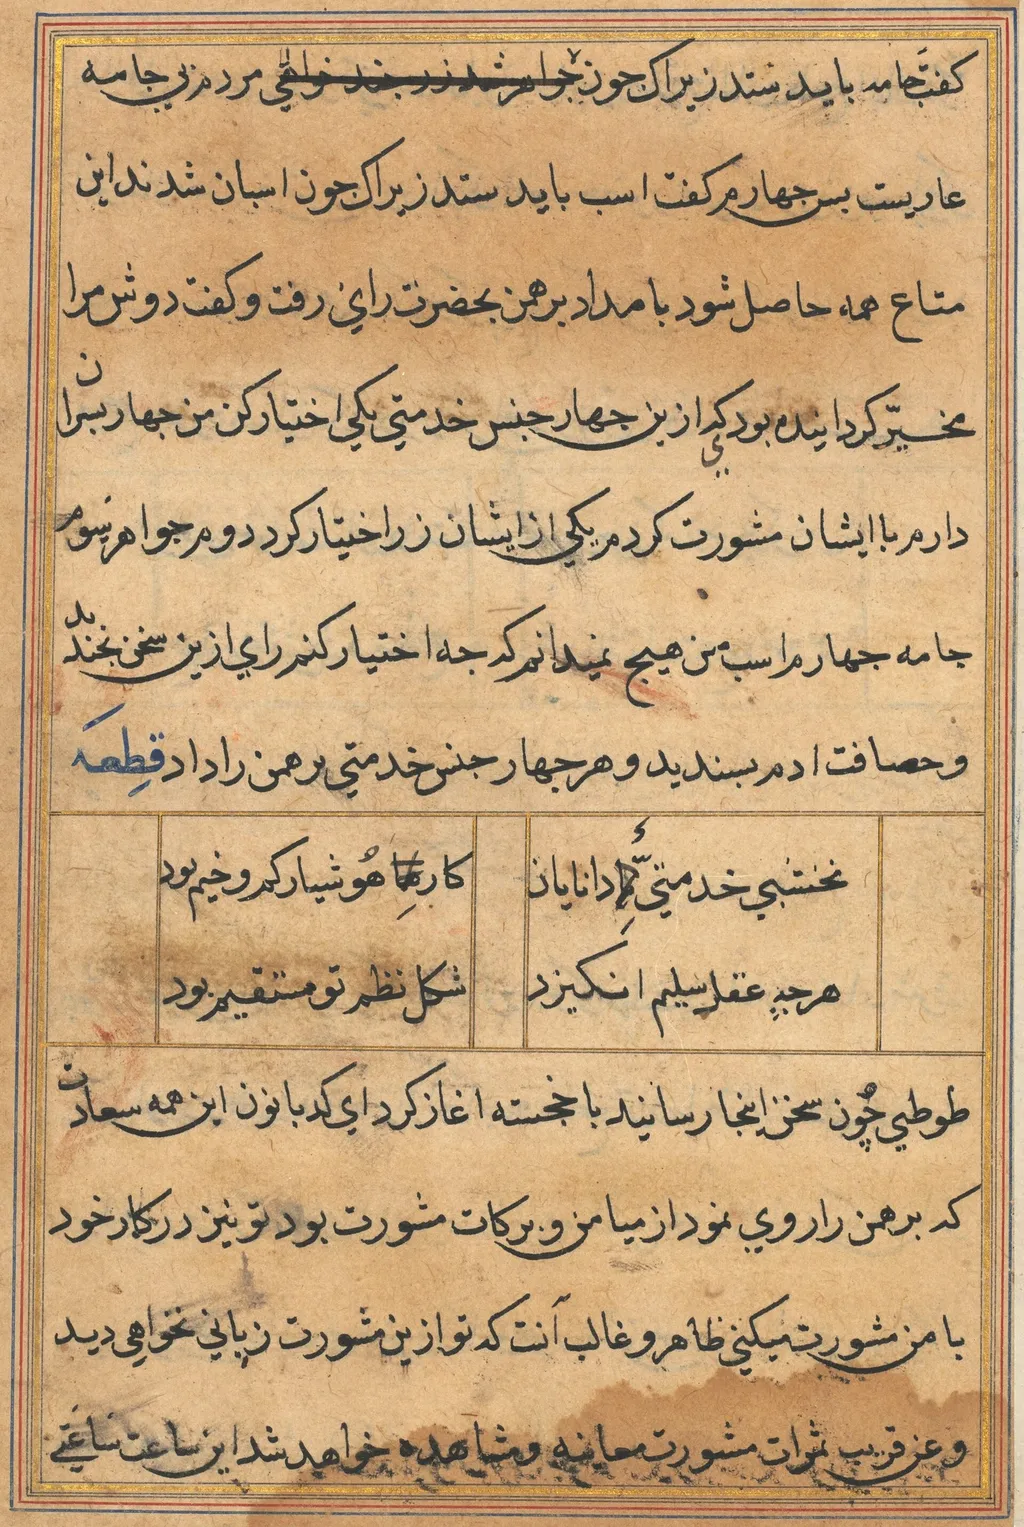 کفت جامه باید ستد زیراک جون جواهر شد زر جند خواهی مردم بی جامه
عاریست بس جهارم کفت اسب باید ستد زیراک جون اسبان شدند این
متاع همه حاصل شود بامداد برهمن بحضرت رای رفت و کفت دوش مرا
مخیّر کردانیده بود کی ازین جهار جنس خدمتی یکی اختیار کن من جهار بسران
دارم با ایشان مشورت کردم یکی از ایشان زر اختیار کرد دوم جواهر سوم
جامه جهارم اسب من هیج نمیدانم که جه اختیار کنم رای ازین سخن بخندید
و حصافت ادم بسندید و هر جهار جنس خدمتی برهمن را داد قطعه
نخشبی خدمتی دانایان
کارها هُوشیار کم وخیم بود
هرجه عقل سلیم انکیزد
شکل نظم تو مستقیم بود
طوطی چون سخن اینجا رسانید با خجسته اغاز کرد ای کدبانون این همه سعادت
که برهمن را روی نمود از میامن و برکات مشورت بود تو نیز در کار خود
با من مشورت میکنی ظاهر و غالب آنست که تو ازین مشورت زیانی نخواهی دید
و عن قریب ثمرات مشورت معاینه و مشاهده خواهد شد این ساعت ساعتی